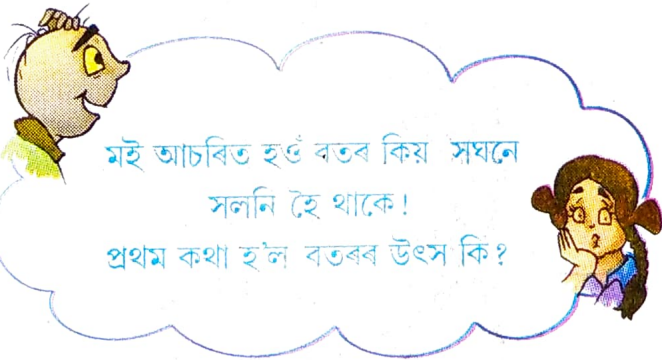 মই আচৰিত হওঁ বতৰ কিয় সঘনে
সলনি হৈ থাকে!
প্ৰথম কথা হ'ল বতৰৰ উৎস কি?